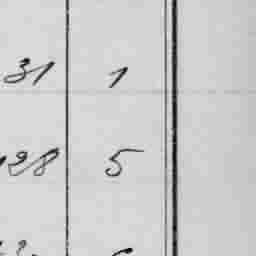 31 1
128 5